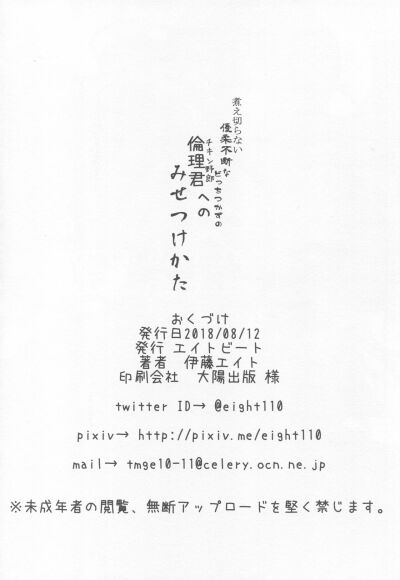 煮え切らない
優柔不断な
どっちつかずの
倫理君への
チキン野郎
みせつけかた
おくづけ
発行日2018/08/12
発行 エイトビート
著者 伊藤エイト
印刷会社 大陽出版 様
twitter ID→ @eight110
pixiv→ http://pixiv.me/eight110
mail→ tmge10-11@celery.ocn.ne.jp
※未成年者の閲覧、無断アップロードを堅く禁じます。